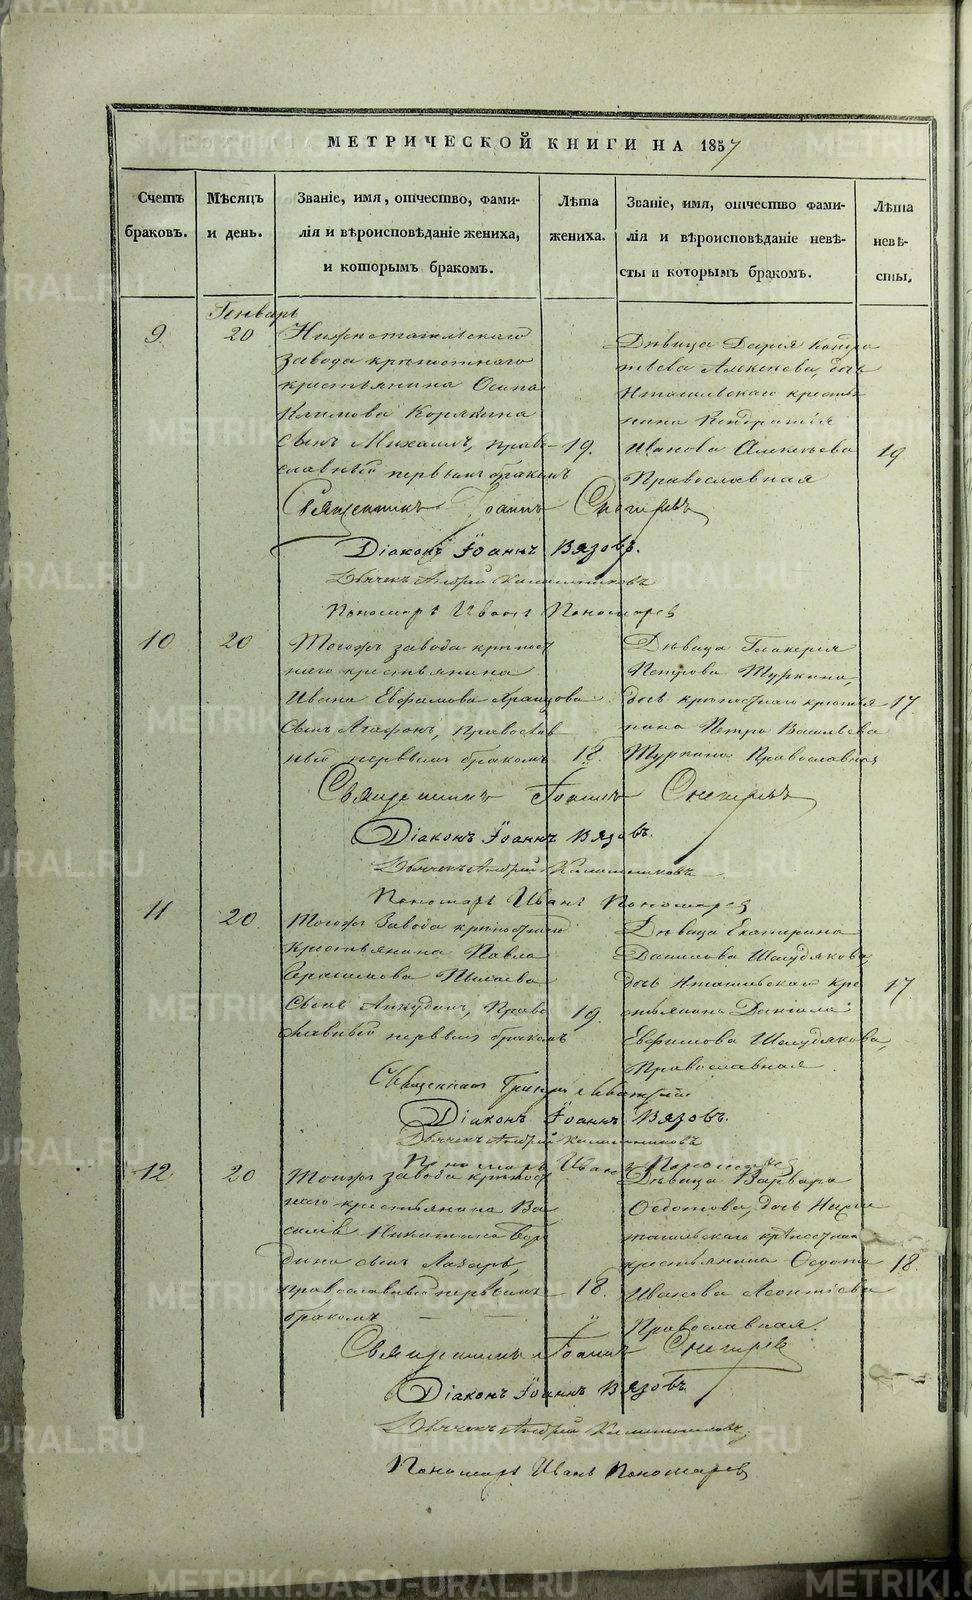 МЕТРИЧЕСКОЙ КНИГИ НА 1857
Счетъ браковъ.
Мѣсяцъ и день.
Званіе, имя, отчество, фами-
лія и вѣроисповѣданіе жениха,
и которымъ бракомъ.
Лѣта жениха.
Званіе, имя, отчество фами-
лія и вѣроисповѣданіе невѣ-
сты и которымъ бракомъ.
Лѣта невѣ-
сты.
Генварь
9
20
Нижнетагильскаго
завода крѣпостнаго
крестьянина Осипа
Корякина
сынъ Михаилъ, право-
славный первымъ бракомъ
19.
Дѣвица Дарья Кондра
тьева Алексѣева, дочь
Нтагильскаго кресть
янина Кондратія
Иванова Алексѣева
Православная
19
Священникъ Іоаннъ Снегиревъ
Діаконъ Іоаннъ Вязовъ.
Дьячекъ Андрей Калашниковъ
Пономарь Иванъ Пономарев
10
20
Тогожъ завода крѣпост
наго крестьянина
Ивана Евфимова
сынъ Агафонъ, Православ
ный первымъ бракомъ
18.
Дѣвица Гликерія
Петрова Туркина,
дочь крѣпостнаго крестья
нина Петра Васильева
Туркина Православная
17
Священникъ Іоаннъ Снегиревъ
Діаконъ Іоаннъ Вязовъ.
Дьячекъ Андрей Калашниковъ
Пономарь Иванъ Пономарев
11
20
Тогожъ Завода крѣпостнаго
Крестьянина Павла
Герасимова
сынъ Анкудинъ, Право
славный первымъ бракомъ
19.
Дѣвица Екатерина
Данилова Шелудякова,
дочь Нтагильскаго кре
стьянина Даніила
Евфимова Шелудякова,
Православная
17
Священникъ Григорій
Діаконъ Іоаннъ Вязовъ.
Дьячекъ Андрей Калашниковъ
Пономарь Иванъ Пономарев
12
20
Тогожъ завода крѣпост
наго крестьянина Ва
силія Никитина Бор
дина сынъ Лазарь,
православный первымъ
бракомъ
18.
Дѣвица Варвара
Ѳедотова, дочь Нижне
тагильскаго крѣпостнаго
крестьянина Ѳедота
Иванова Леонтіева
Православная.
18.
Священникъ Іоаннъ Снегирев
Діаконъ Іоаннъ Вязовъ.
Дьячекъ Андрей Калашниковъ
Пономарь Иванъ Пономарев
METRIKI.GASO-URAL.RU